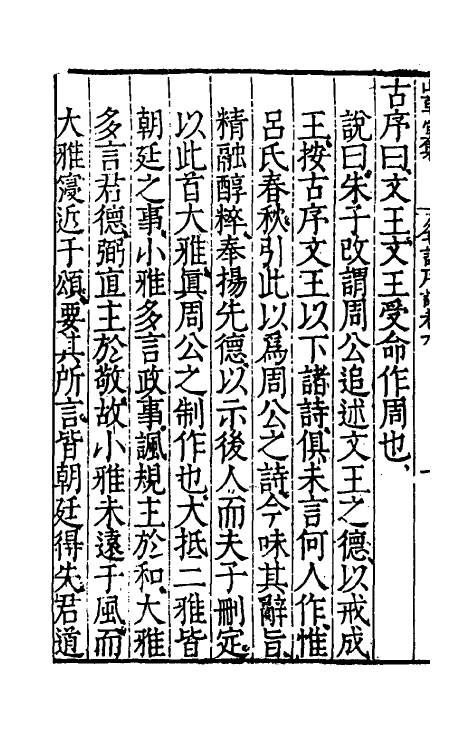 古序曰、文王、文王受命作周也、
說曰、朱子改謂周公追述文王之德、以戒成
王、按古序文王以下諸詩、俱未言何人作、惟
呂氏春秋、引此以爲周公之詩、今味其辭旨、
精融醇粹、奉揚先德、以示後人、而夫子刪定、
以此首大雅、眞周公之制作也、大抵二雅皆
朝廷之事、小雅多言政事、諷規主於和、大雅
多言君德、弼直主於敬、故小雅未遠于風、而
大雅寖近于頌、要其所言、皆朝廷得失、君道